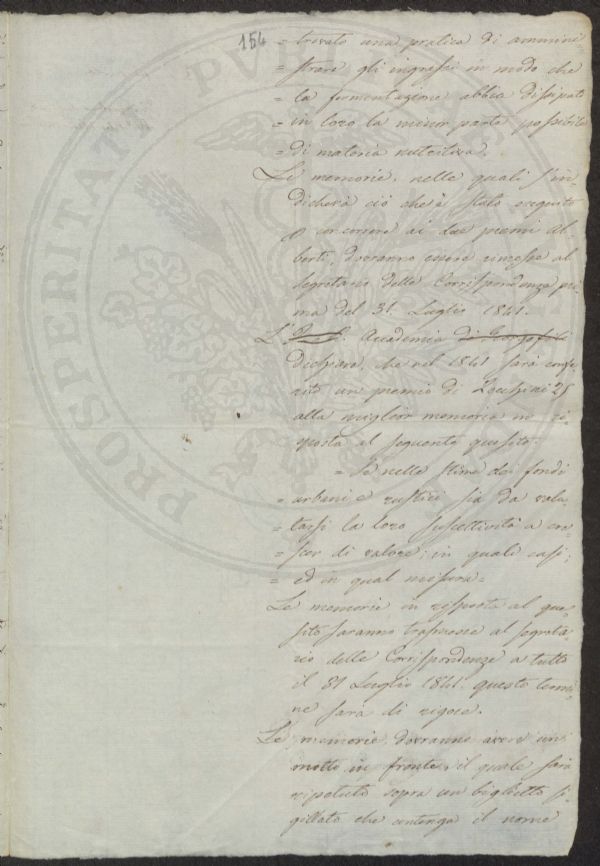 154
= trovato una pratica di ammini
= strare gli ingrassi in modo che
= la fermentazione abbia dissipato
= in loro la minor parte possibile
= di materia nutritiva.
Le memorie, nelle quali s'in-
dicherà ciò che è stato eseguito
p concorrere ai due premi Al-
berti, dovranno essere rimesse al
Segretario delle Corrispondenze pri-
ma del 31. Luglio 1841.
L' Accademia di Georgofili
dichiara, che nel 1841 sarà confe-
rito un premio di Zecchini 25
alla miglior memoria in ri-
sposta al seguente quesito:
= Se nelle stime dei fondi
= urbani e rustici sia da valu-
= tarsi la loro suscettività a cre-
= scer di valore; in quali casi;
= ed in qual misura =
Le memorie in risposta al que-
sito saranno trasmesse al Segreta-
rio delle Corrispondenze a tutto
il 31 Luglio 1841. questo termi-
ne sarà di rigore.
Le memorie dovranno avere un
motto in fronte, il quale sarà
ripetuto sopra un biglietto si-
gillato che contenga il nome
PROSPERITATI PUBLICAE